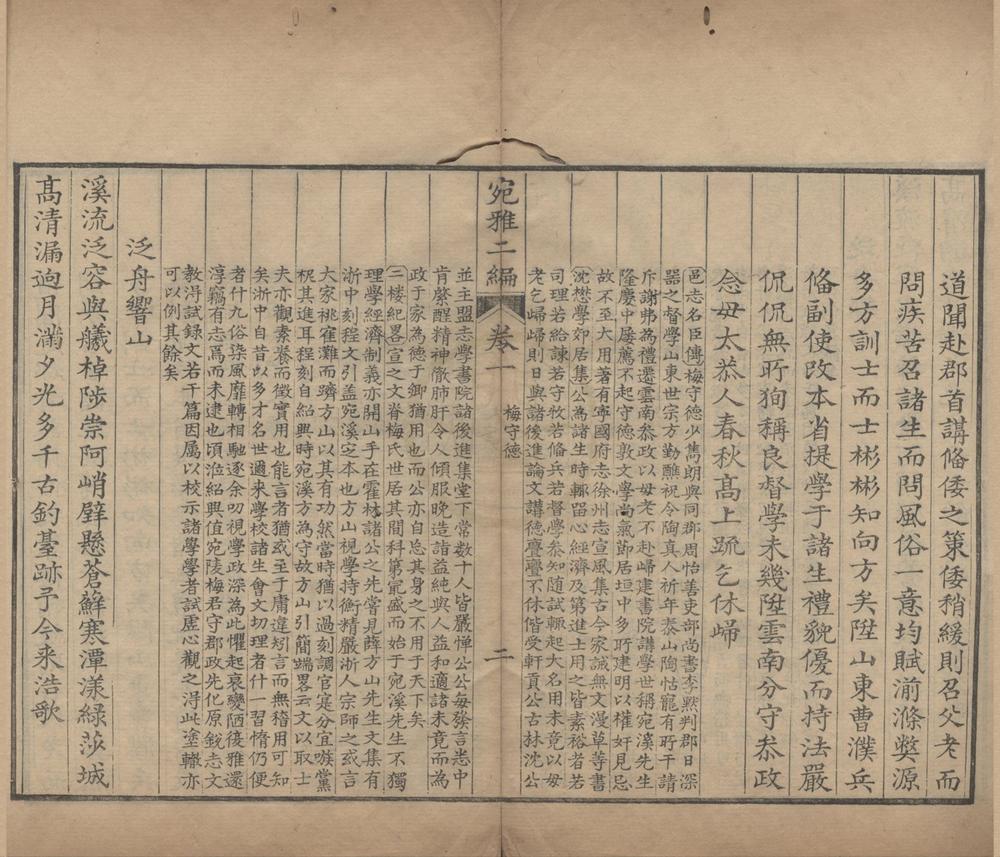 道聞赴郡首講備倭之策倭稍緩則召父老而
問疾苦召諸生而問風俗一意均賦湔滌獘源
多方訓士而士彬彬知向方矣陞山東曹濮兵
備副使改本省提學于諸生禮貌優而持法嚴
侃侃無所狥稱良督學未幾陞雲南分守叅政
念母太恭人春秋髙上䟽乞休歸
邑志名臣傳梅守德少雋朗與同郡周怡善吏部尚書李黙判郡日深
器之督學山東世宗方勤醮祝令陶真人祈年泰山陶怙寵有所干請
斥謝弗為禮遷雲南叅政以母老不赴歸建書院講學世稱宛溪先生
隆慶中屢薦不起守德敦文學尚氣節居垣中多所建明以權奸見忌
故不至大用著有寧國府志徐州志宣風集古今家誡無文漫草等書
沈懋學郊居集公為諸生時輒畱心經濟及第進士用之皆素裕者若
司理若給諫若守牧若備兵若督學叅知隨試輒起大名用未竟以母
老乞歸歸則日與諸後進論文講德亹亹不休偕受軒貢公古林沈公
宛雅二編 卷一 梅守德 二
並主盟志學書院諸後進集堂下常數十人皆嚴憚公公每發言悉中
肯綮醒精神儆肺肝令人傾服晚造詣益純與人益和適諸未竟而為
政于家為德于鄉猶用也而公亦自忘其身之不用于天下矣
二樓紀畧宣之文脊梅氏世居其間科第寔盛而始于宛溪先生不獨
理學經濟制義亦開山手在霍林諸公之先嘗見薛方山先生文集有
浙中刻程文引盖宛溪定本也方山視學持衡精嚴浙人宗師之或言
大家祧寉灘而躋方山以其有功然當時猶以過刻調官寔分宜嗾黨
柷其進耳程刻自紹興時宛溪方為守故方山引簡端畧云文以取士
夫亦觀素養而徵實用也能言者猶或至于庸違矧言而無稽用可知
矣浙中自昔以多才名世邇来學校諸生會文切理者什一習惰仍便
者什九俗柒風靡轉相馳逐余叨視學政深為此懼起衰變陋後雅還
淳竊有志焉而未逮也頃涖紹興值宛陵梅君守郡政先化原銳志文
教淂試録文若干篇因属以校示諸學學者試虛心觀之淂此塗轍亦
可以例其餘矣
泛舟響山
溪流泛容與艤棹陟崇阿峭壁懸蒼蘚寒潭漾緑莎城
髙清漏逈月滿夕光多千古釣臺跡予今来浩歌